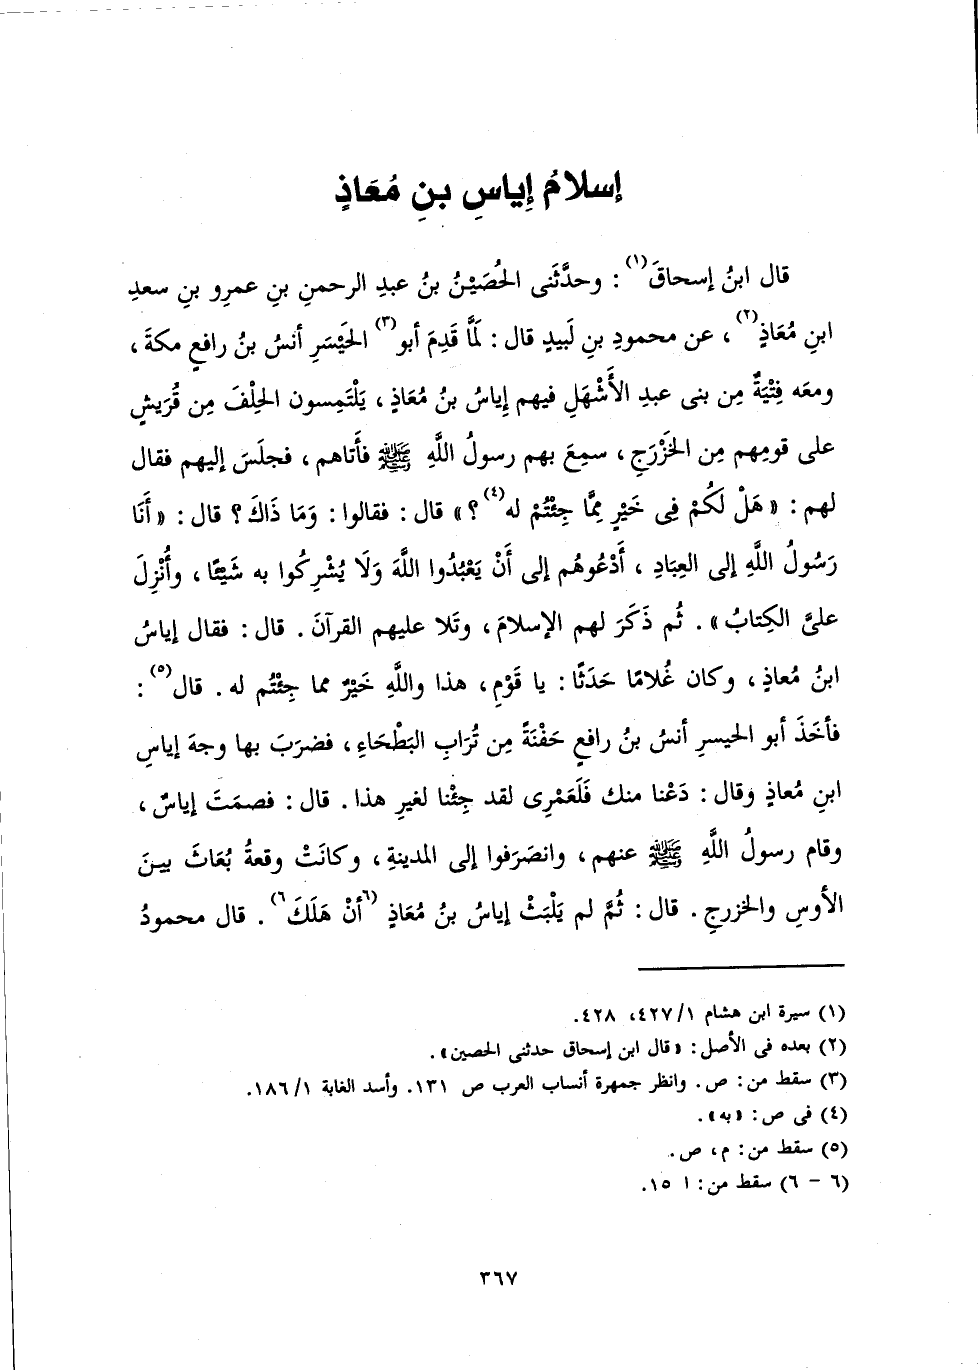 إسلامُ إِياسِ بنِ مُعَاذٍ
قال ابنُ إسحاقَ(١) : وحدَّثَنى الحُصَيْنُ بنُ عبدِ الرحمنِ بنِ عمرِو بنِ سعدِ
ابنِ مُعَاذٍ(٢) ، عن محمودِ بنِ لَبيدٍ قال : لَمَّا قَدِمَ أبو(٣) الحَيْسَرِ أنسُ بنُ رافعٍ مكةَ ،
ومعَه فِتْيَةٌ مِن بنى عبدِ الأَشْهَلِ فيهم إياسُ بنُ مُعَاذٍ ، يَلْتَمِسون الحِلْفَ مِن قُرَيشٍ
على قومِهم مِن الخَزْرَجِ ، سمِعَ بهم رسولُ اللَّهِ ﷺ فأَتاهم ، فجلَسَ إليهم فقال
لهم : « هَلْ لَكُمْ فِى خَيْرٍ مِمَّا جِئْتُمْ له(٤) ؟ » قال : فقالوا : وَمَا ذَاكَ ؟ قال : « أَنَا
رَسُولُ اللَّهِ إلى العِبَادِ ، أَدْعُوهُم إلى أَنْ يَعْبُدُوا اللَّهَ وَلَا يُشْرِكُوا به شَيْئًا ، وأُنْزِلَ
علىَّ الكِتابُ » . ثُم ذَكَرَ لهم الإسلامَ ، وتَلا عليهم القرآنَ . قال : فقال إياسُ
ابنُ مُعاذٍ ، وكان غُلامًا حَدَثًا : يا قَوْمِ ، هذا واللَّهِ خَيْرٌ مما جِئْتُم له . قال(٥) :
فأخَذَ أبو الحيسرِ أنسُ بنُ رافعٍ حَفْنَةً مِن تُرَابِ البَطْحَاءِ ، فضرَبَ بها وجهَ إياسِ
ابنِ مُعاذٍ وقال : دَعْنا منك فَلَعَمْرِى لقد جِئْنا لغيرِ هذا . قال : فصمَتَ إياسٌ ،
وقام رسولُ اللَّهِ ﷺ عنهم ، وانصَرَفوا إلى المدينةِ ، وكانَتْ وقعةُ بُعَاثَ بينَ
الأوسِ والخزرجِ . قال : ثُمَّ لم يَلْبَثْ إياسُ بنُ مُعَاذٍ (٦أنْ هَلَكَ٦) . قال محمودُ
(١) سيرة ابن هشام ١/ ٤٢٧، ٤٢٨.
(٢) بعده فى الأصل: «قال ابن إسحاق حدثنى الحصين».
(٣) سقط من: ص. وانظر جمهرة أنساب العرب ص ١٣١. وأسد الغابة ١/ ١٨٦.
(٤) فى ص: «به».
(٥) سقط من: م، ص.
(٦ - ٦) سقط من: ا ١٥.
٣٦٧